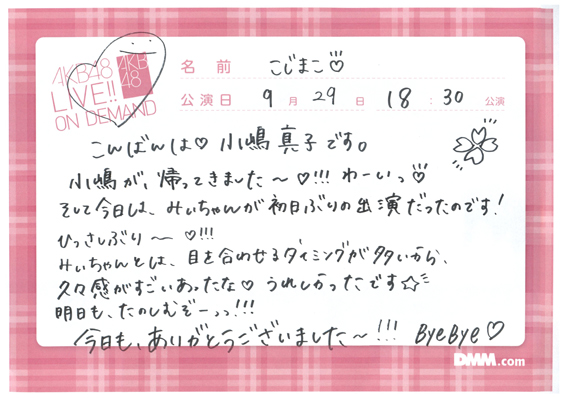 AKB48
LIVE!!
ON DEMAND
AKB
48
名前 こじまこ♡
公演日 9月29日 18:30公演
こんばんは♡小嶋真子です。
小嶋が、帰ってきました〜♡!!! わーいっ♡
そして今日は、みぃちゃんが初日ぶりの出演だったのです!
ひっさしぶり〜♡!!!
みぃちゃんとは、目を合わせるタイミングが多いから、
久々感がすごいあったな♡うれしかったです☆
明日も、たのしむぞーっっ!!!
今日も、ありがとうございました〜!!! ByeBye♡
DMM.com